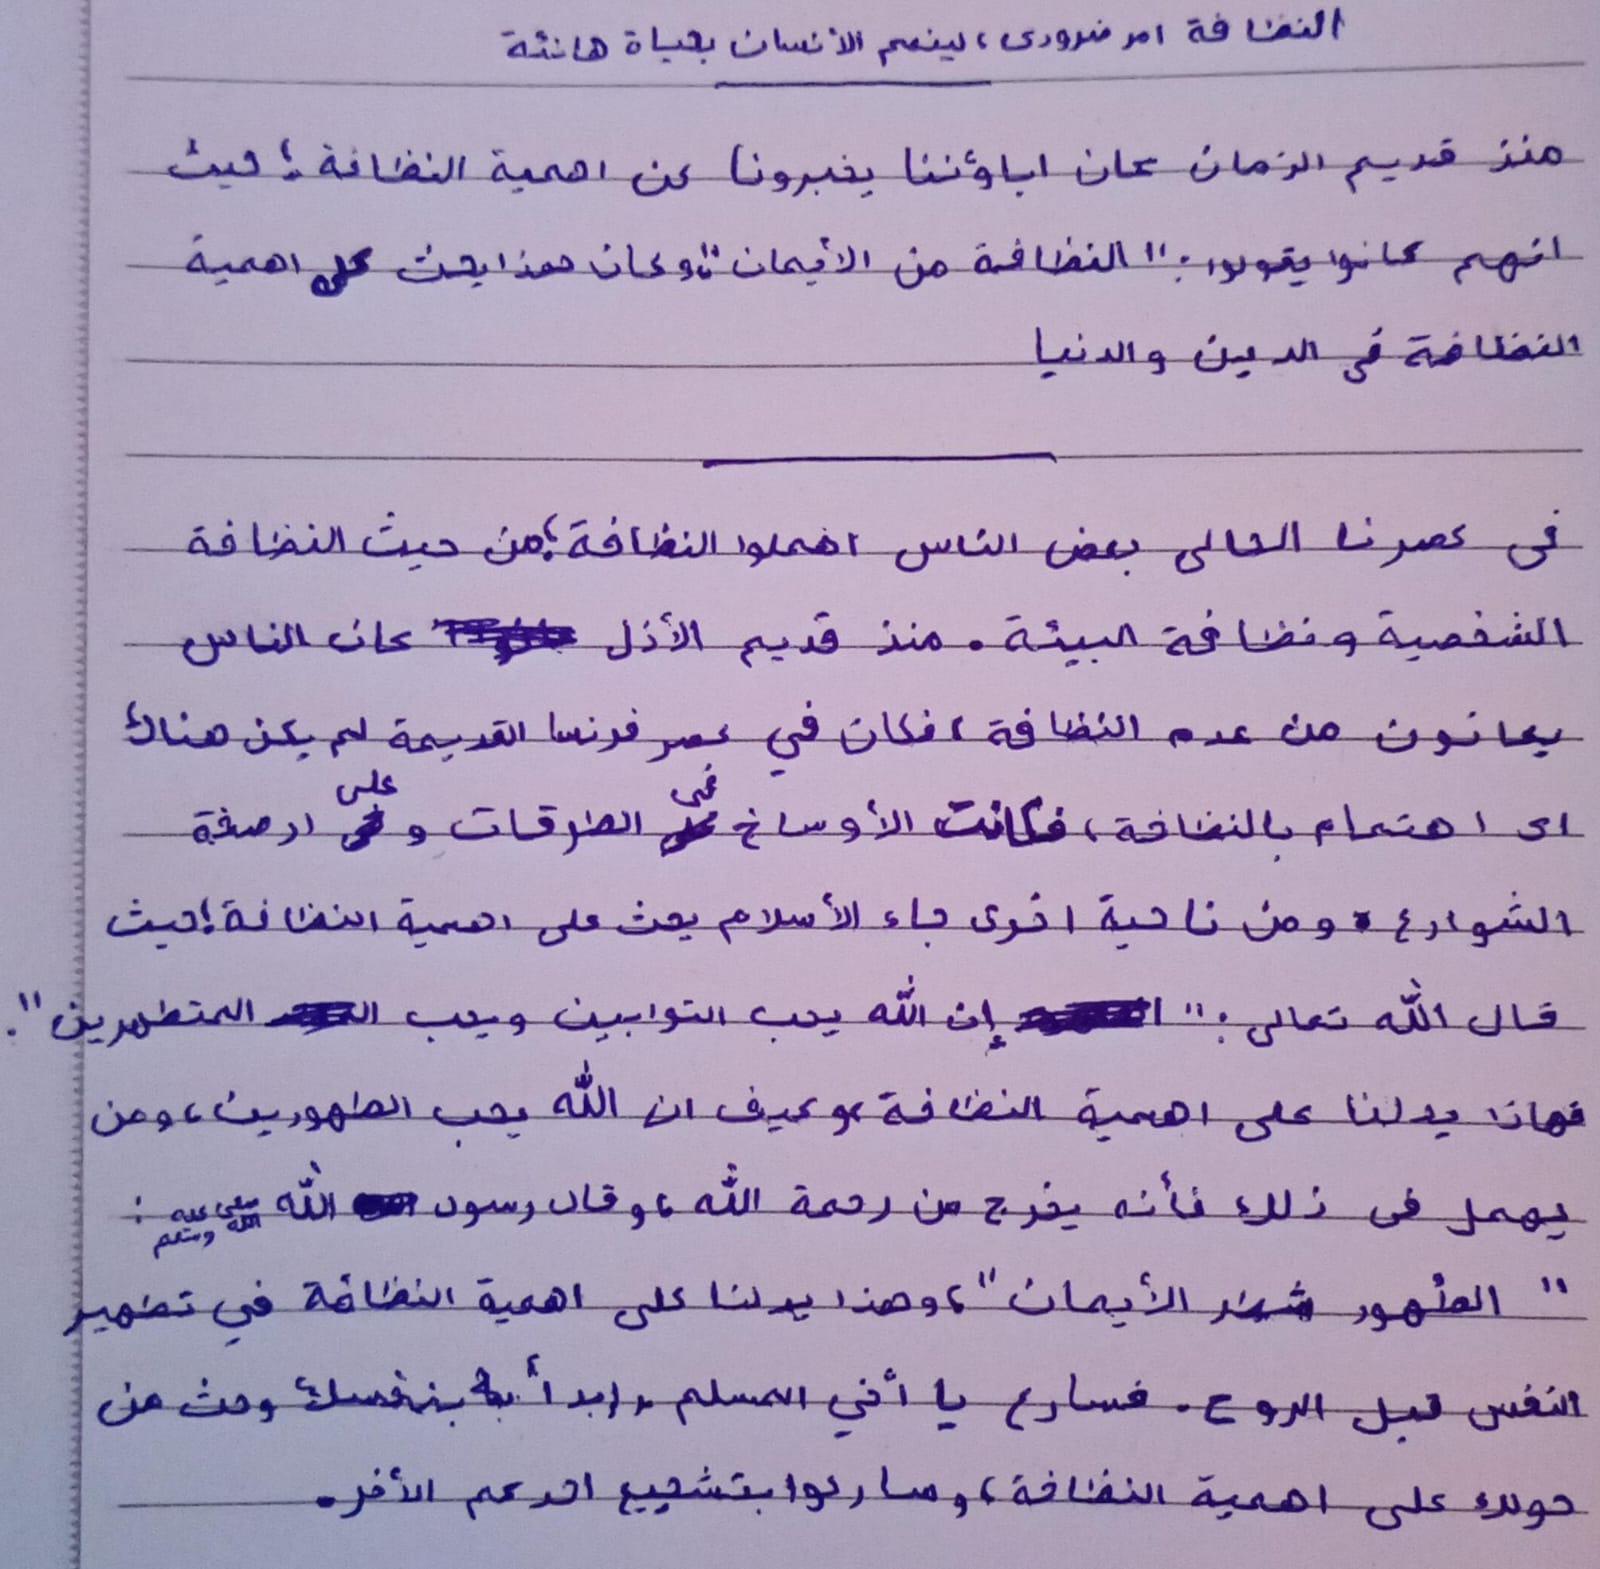 النظافة امر ضرورى، لينعم الأنسان بحياة هانئة
منذ قديم الزمان كان اباؤننا يخبرونا عن اهمية النظافة؛ حيث
انهم كانوا يقولوا: "النظافة من الأيمان"، وكان هذا يحث على اهمية
النظافة فى الدين والدنيا
فى عصرنا الحالى بعض الناس اهملوا النظافة؛ من حيث النظافة
الشخصية ونظافة البيئة. منذ قديم الأزل كان الناس
يعانون من عدم النظافة، فكان في عصر فرنسا القديمة لم يكن هناك
اى اهتمام بالنظافة، فكانت الأوساخ فى الطرقات و على ارصفة
الشوارع. ومن ناحية اخرى جاء الأسلام يحث على اهمية النظافة؛ حيث
قال الله تعالى: "إن الله يحب التوابين ويحب المتطهرين".
فهاذا يدلنا على اهمية النظافة، وكيف ان الله يحب الطهورين، ومن
يهمل فى ذلك فأنه يخرج من رحمة الله، وقال رسول الله صلى الله عليه وسلم:
"الطُهور شطر الأيمان"، وهذا يدلنا على اهمية النظافة في تطهير
النفس قبل الروح. فسارع يا أخي المسلم، إبدأ بنفسك وحث من
حولك على اهمية النظافة، وسارعوا بتشجيع احدكم الأخر.